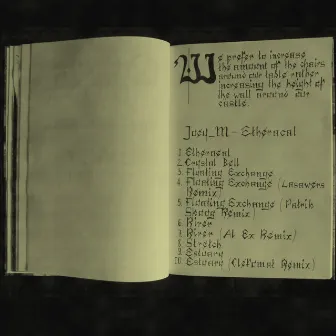 We prefer to increase
the amount of the chairs
around our table rather
increasing the height of
the wall around our
castle.
Joey_M - Ethereal
1. Ethereal
2. Crystal Bell
3. Floating Exchange
4. Floating Exchange (Lasawers
Remix)
5. Floating Exchange (Patrik
Skoog Remix)
6. River
7. River (At Ex Remix)
8. Stretch
9. Estuary
10. Estuary ( Remix)